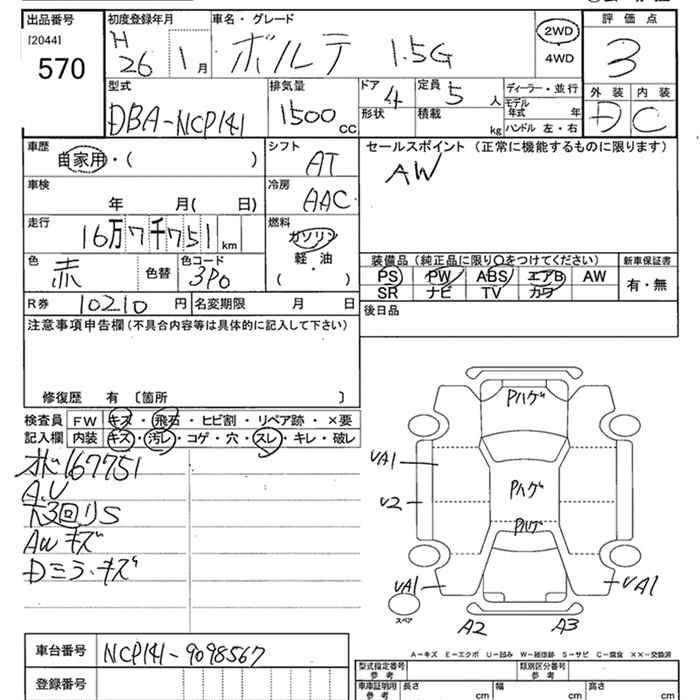 出品番号 初度登録年月 車名・グレード 評価点
[2044] H
570 26 1月 ボルテ 1.5G 2WD 3
4WD
型式 排気量 ドア 4 定員 5人 ディーラー・並行 外装 内装
DBA-NCP141 1500cc 形状 積載 kg モデル年式 年 D C
ハンドル 左・右
車歴 シフト セールスポイント (正常に機能するものに限ります)
自家用・( ) AT AW
車検 冷房
年 月( 日) AAC
走行 燃料
16万7千751km ガソリン
軽・油
( )
色 色コード 装備品(純正品に限り○をつけてください) 新車保証書
赤 色替 3P0 PS PW ABS エアB AW 有・無
SR ナビ TV カワ
R券 10210円 名変期限 月 日 後日品
注意事項申告欄(不具合内容等は具体的に記入して下さい)
修復歴 有 〔箇所 〕
検査員 FW キズ・飛石・ヒビ割・リペア跡・×要
記入欄 内装 キズ・汚レ・コゲ・穴・スレ・キレ・破レ
167751
A.U
AWキズ
Dミラーキズ
Pハゲ
UA1
U2
Pハゲ
Pハゲ
UA1
UA1
スペア
A2 A3
A-キズ E-エクボ U-凹み W-補修跡 S-サビ C-腐食 ××-交換済
車台番号 NCP141-9098567
登録番号
型式指定番号 参考 類別区分番号 参考
車庫証明用 参考 長さ cm 幅 cm 高さ cm